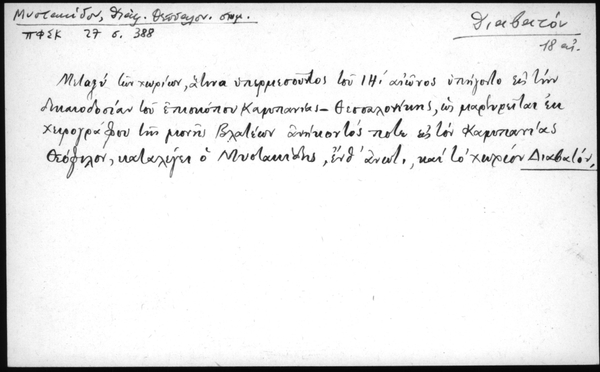 Μυστακίδου, Θεσσαλον. σημ.
ΠΦΣΚ 27 σ. 388
Διαβατόν
18 αἰ.
Μεταξὺ τῶν χωρίων, ἅτινα ὑπερμεσοῦντος τοῦ ΙΗ΄ αἰῶνος ὑπήγοντο εἰς τὴν
δικαιοδοσίαν τοῦ ἐπισκόπου Καμπανίας - Θεσσαλονίκης, ὡς μαρτυρεῖται ἐκ
χειρογράφου τῆς μονῆς Βλατέων ἀνήκοντός ποτε εἰς τὸν Καμπανίας
Θεόφιλον, καταλέγει ὁ Μυστακίδης, ἔνθ' ἀνωτ., καὶ τὸ χωρίον Διαβατόν.